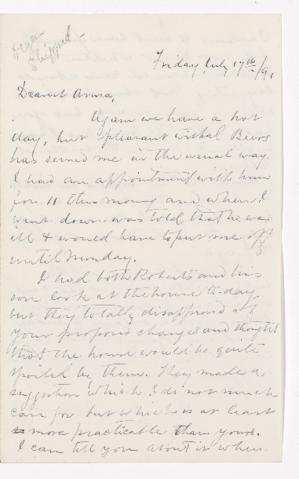 Friday, July 17th/91
Dearest Anna,
Again we have a hot
day, but pleasant withal. Beers
has served me in the usual way.
I had an appointment with him
for 11 this morng and when I
went down was told that he was
ill & would have to put me off
until Monday.
I had both Roberts and his
son look at the house to-day
but they totally disapproved of
your proposed changes and thought
that the house would be quite
spoiled by them. They made a
suggestion which I do not much
care for but which is at least
more practicable than yours.
I can tell you about it when